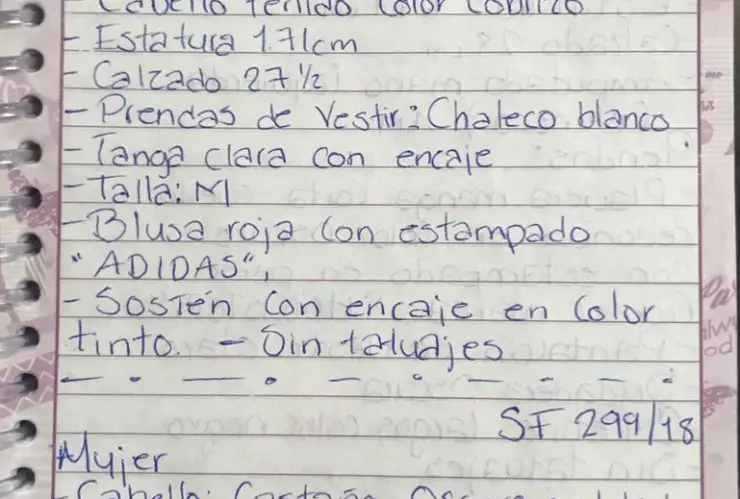 Cabello Teñido Color Cobrizo
- Estatura 1.71cm
- Calzado 27 ½
- Prendas de Vestir: Chaleco blanco.
- Tanga clara con encaje
- Talla: M
- Blusa roja con estampado
"ADIDAS",
- Sostén con encaje en Color
tinto. - Sin tatuajes
SF 299/18
Mujer
- Cabello: Castaño